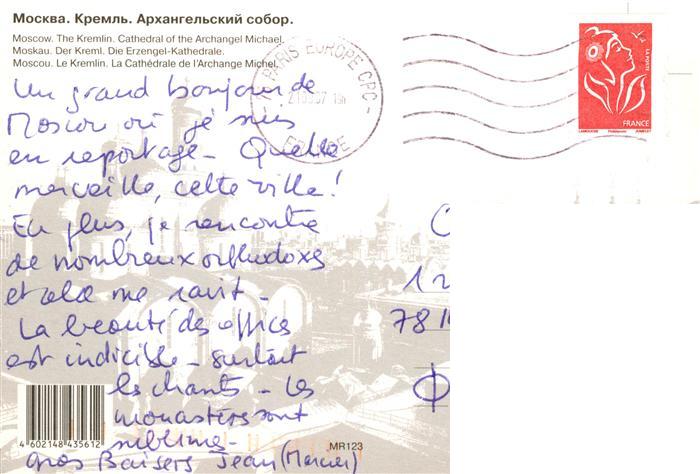 Москва. Кремль. Архангельский собор.
Moscow. The Kremlin. Cathedral of the Archangel Michael.
Moskau. Der Kreml. Die Erzengel-Kathedrale.
Moscou. Le Kremlin. La Cathédrale de l'Archange Michel.
Un grand bonjour de
Moscou où je suis
en reportage - Quelle
merveille, cette ville!
En plus, je rencontre
de nombreux orthodoxes
et cela me ravit -
La beauté des offices
est indicible - surtout
les chants - Les
monastères sont
sublimes -
Gros Baisers Jean (Mercier)
4 602148 435612
MR123
PARIS EUROPE CPC
FRANCE
LA POSTE
FRANCE
LAMOUCHE
1
78
Ф